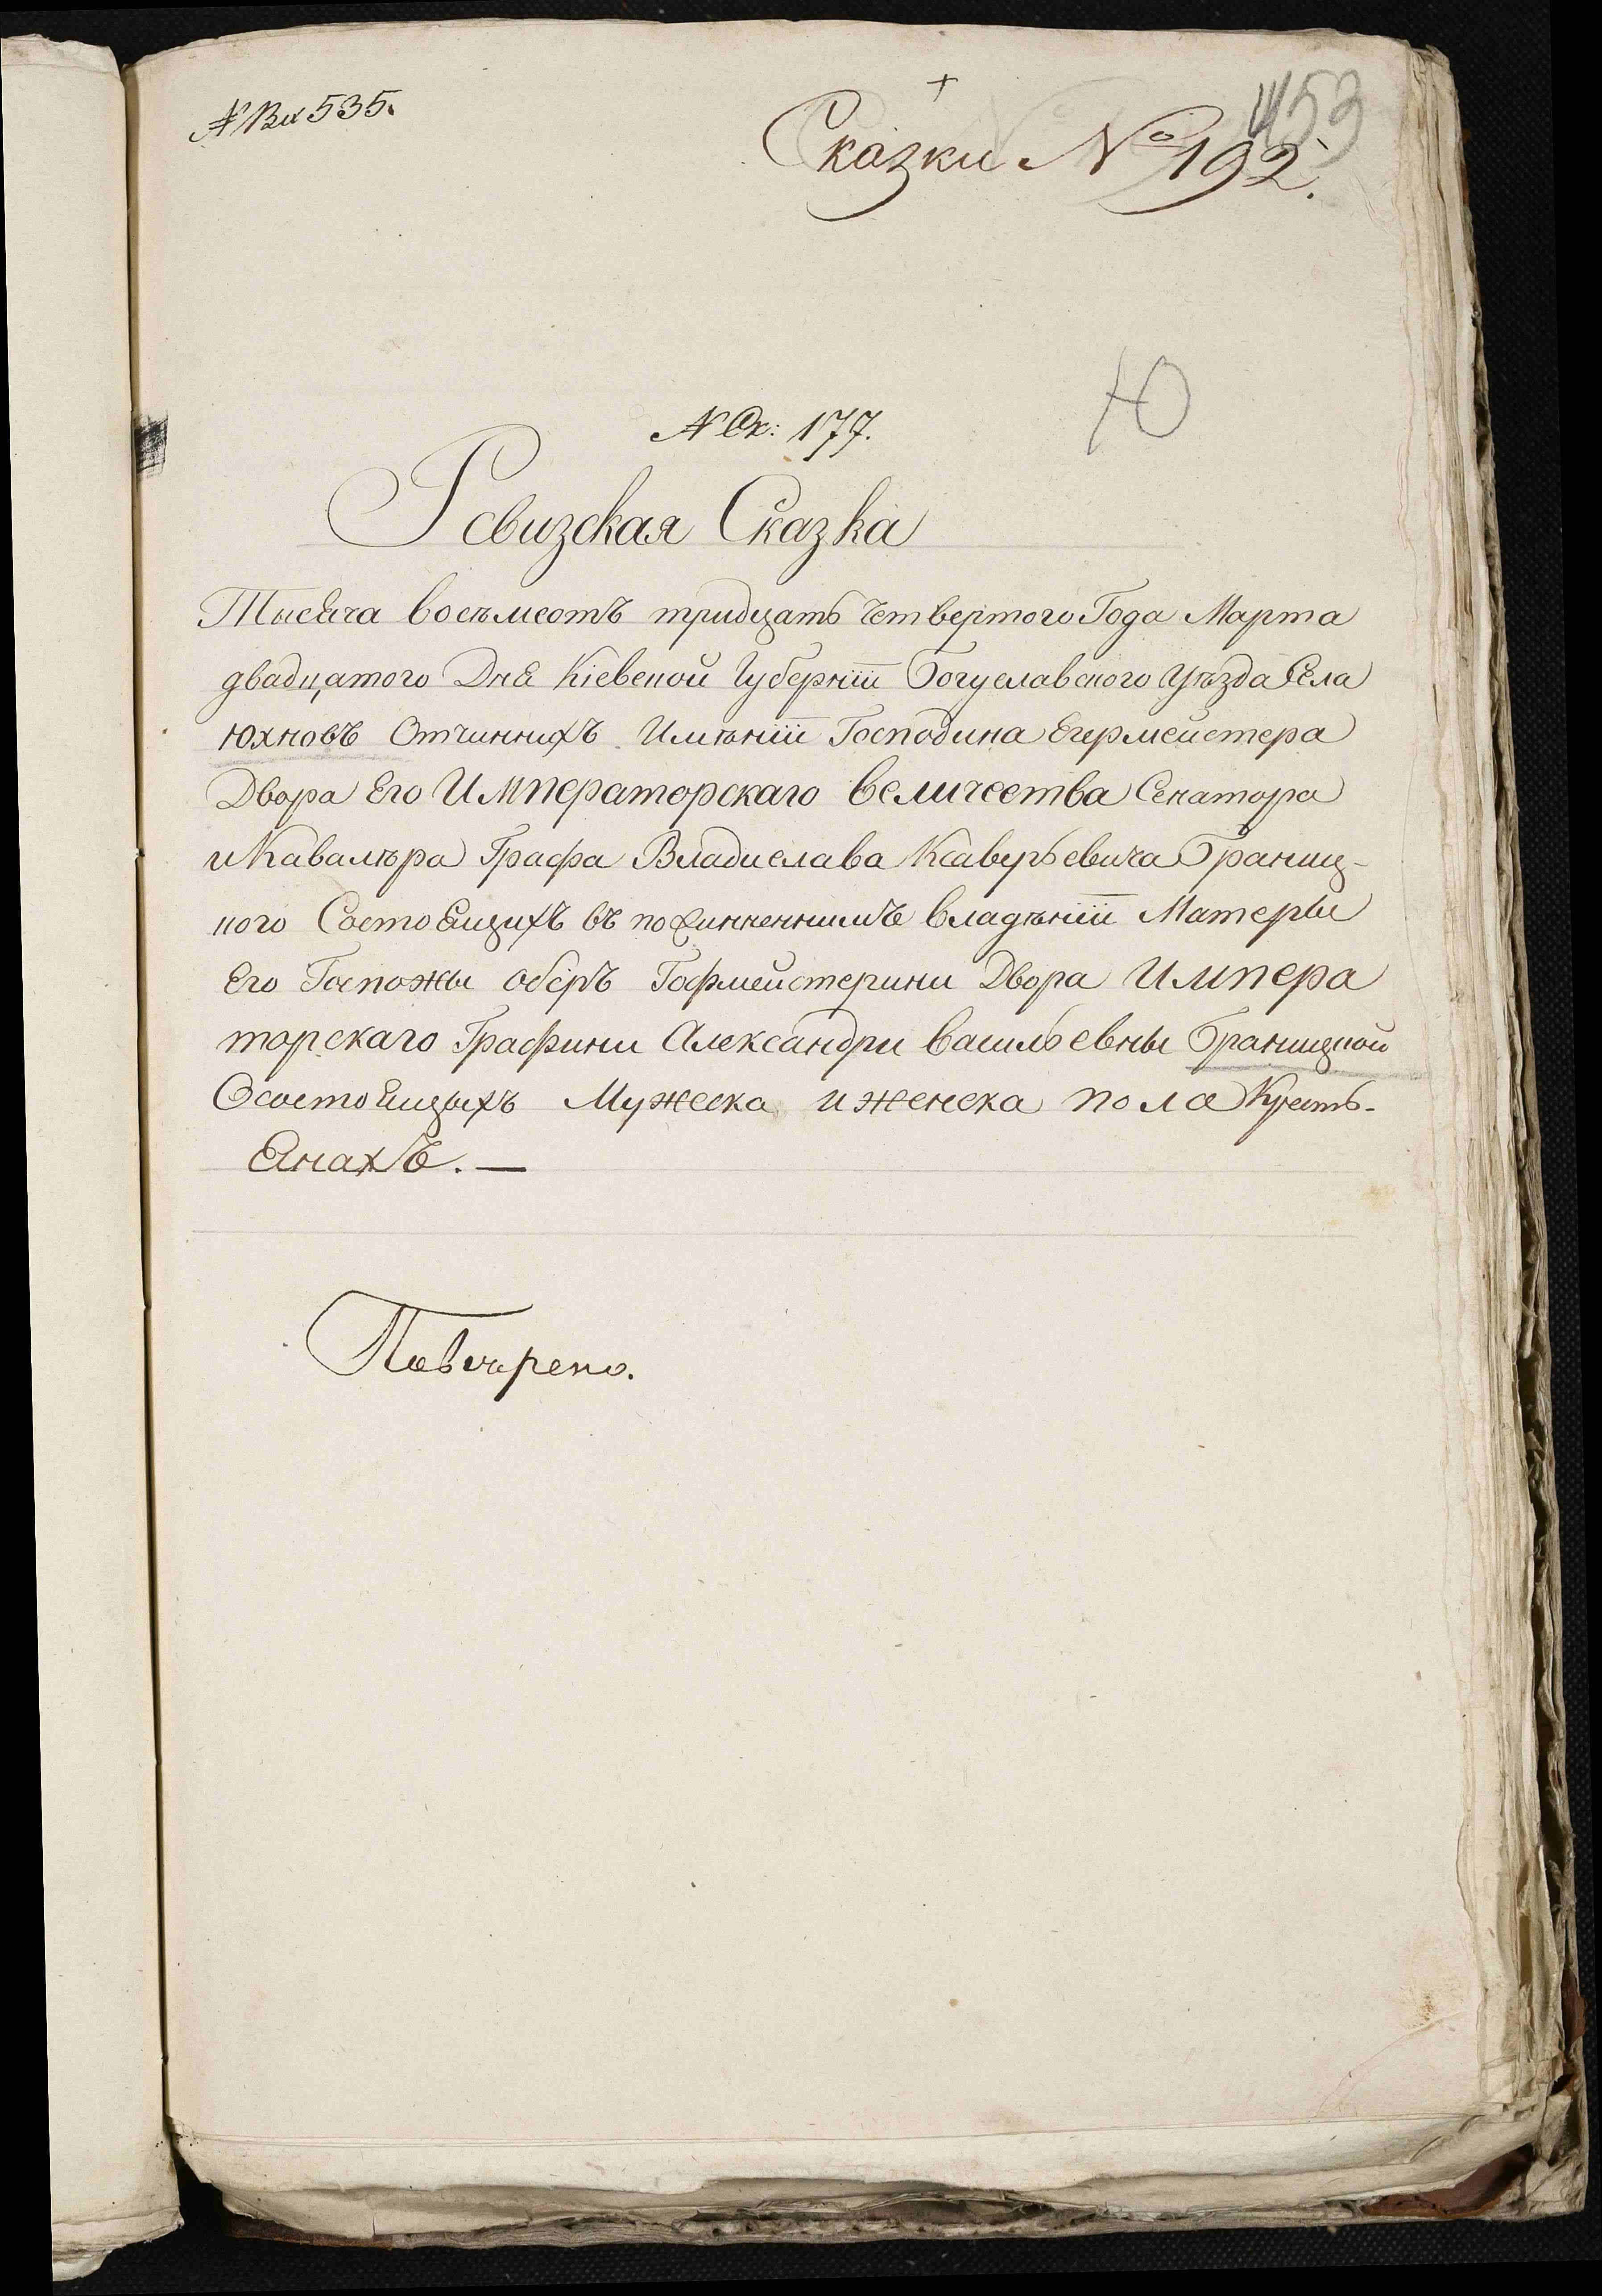 № Вх 535.
453
Сказки № 192.
Ю
№ Ск: 177.
Ревизская Сказка
Тысяча восъмсотъ тридцать Четвертого Года Марта
двадцатого Дня Кіевской Губерніи Богуславского Уѣзда Села
Юхновъ Отчиннихъ Имѣніи Господина Егермейстера
Двора Его Императорскаго величества Сенатора
и Кавалѣра Графа Владислава Ксаверьевича Браниц-
кого Состоящихъ въ владѣніи Матеры
Его Госпожы оберъ Гофмейстерини Двора Импера
торскаго Графини Александри васильевны Браницкой
О состоящыхъ Мужеска и женска пола Кресть-
Янахъ. —
Повѣрено.